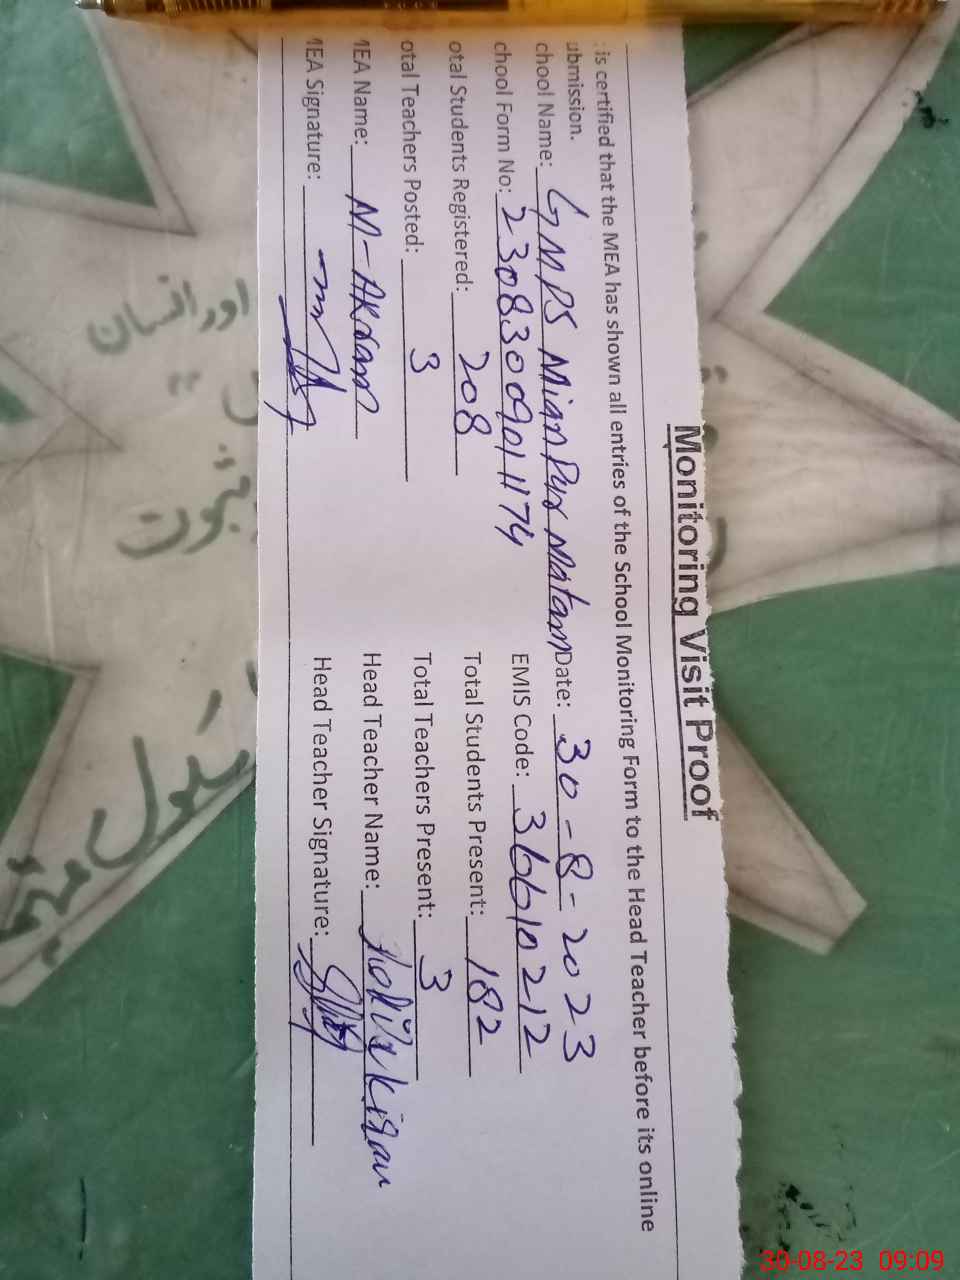 Monitoring Visit Proof
is certified that the MEA has shown all entries of the School Monitoring Form to the Head Teacher before its online
ubmission.
chool Name: GMPS Mian Pur Matam Date: 30-8-2023
chool Form No: 23083009011174 EMIS Code: 36610212
otal Students Registered: 208 Total Students Present: 182
otal Teachers Posted: 3 Total Teachers Present: 3
MEA Name: M-Akram Head Teacher Name: Kiran
MEA Signature: Head Teacher Signature:
اور انسان
رسول
30-08-23 09:09